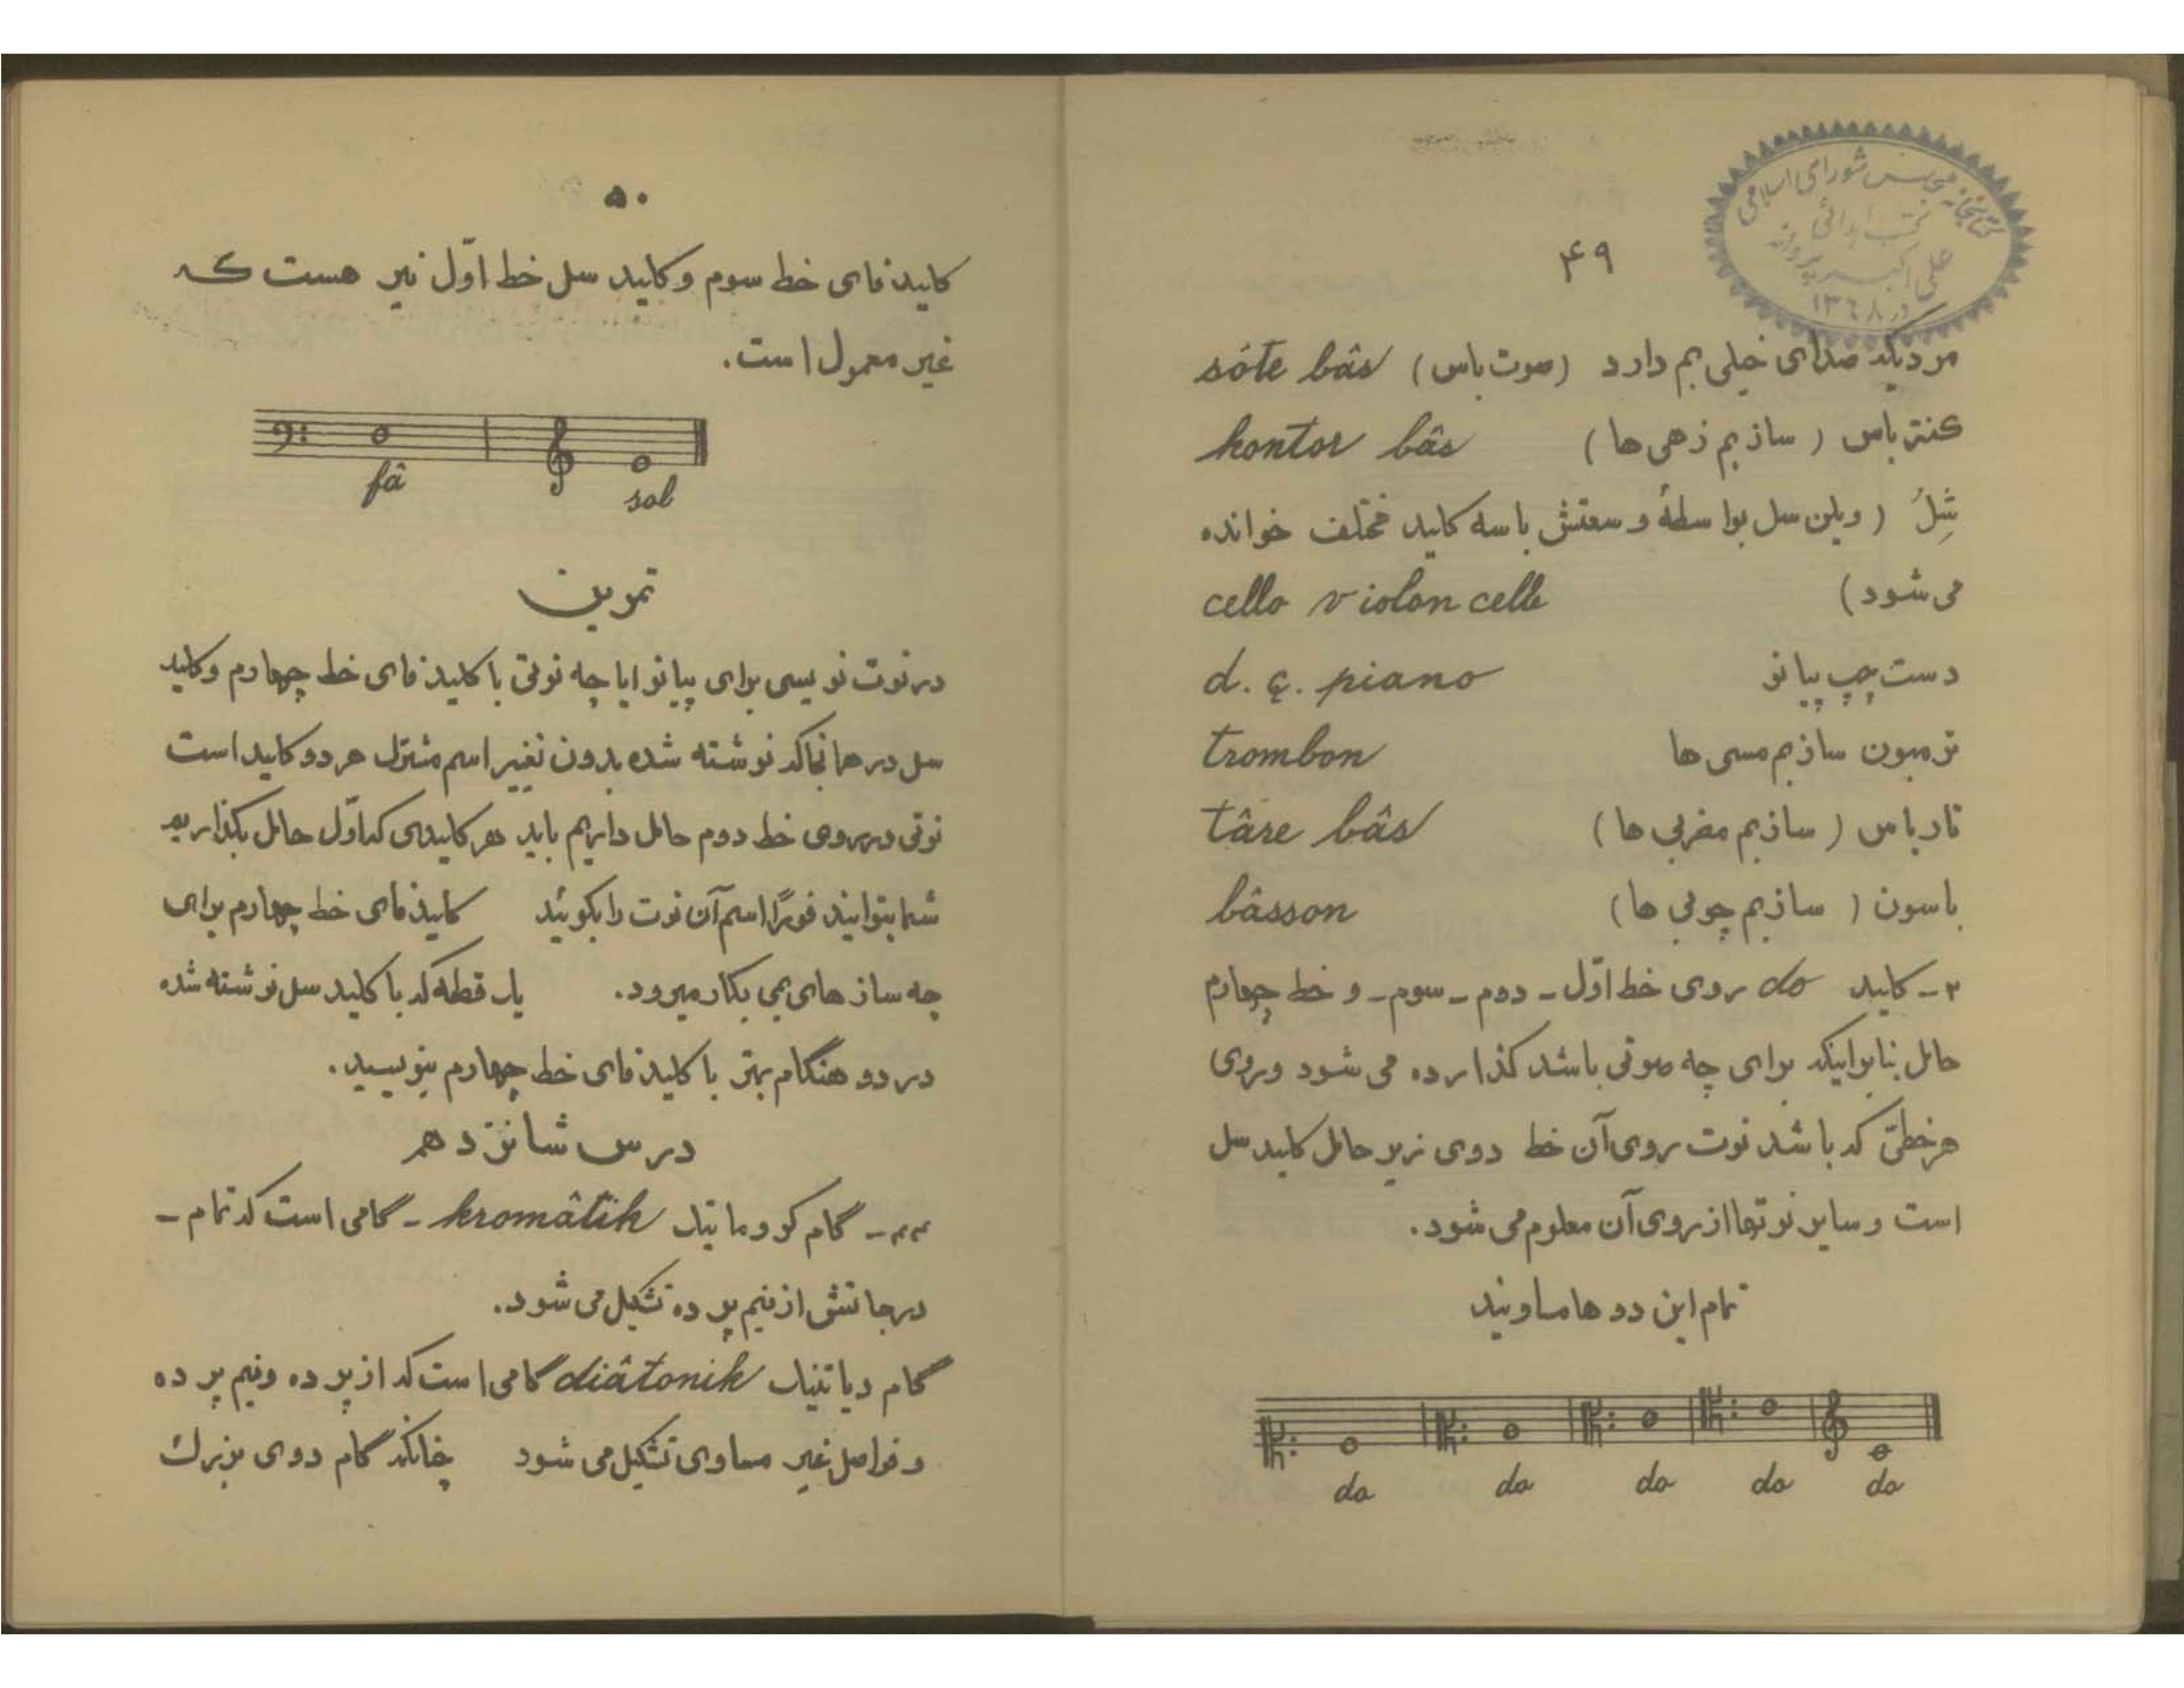 ۴۹
کتابخانه مجلس شورای اسلامی
کتب اهدائی
علی اکبر
در ۱۳۶۸
مردیکه صدای خیلی بم دارد (صوت باس) sôte bâs
کنترباس (ساز بم زهی ها) kontor bâs
شِلُ (ویلن سل بواسطهٔ وسعتش با سه کلید مختلف خوانده
می شود) cello violon celle
دست چپ پیانو d. ç. piano
ترمبون ساز بم مسی ها trombon
تار باس (ساز بم مضرابی ها) târe bâs
باسون (ساز بم چوبی ها) bâsson
۲- کلید do روی خط اوّل - دوم - سوم - و خط چهارم
حامل بنابراینکه برای چه صوتی باشد گذارده می شود و روی
هر خطّی که باشد نوت روی آن خط دوی زیر حامل کلید سل
است و سایر نوتها از روی آن معلوم می شود.
تمام این دوها مساویند
do do do do do
۵۰
کلید فای خط سوم و کلید سل خط اوّل نیز هست که
غیر معمول است.
fâ sol
تمرین
در نوت نویسی برای پیانو ایا چه نوتی با کلید فای خط چهارم و کلید
سل در همانجا که نوشته شده بدون تغییر اسم مشترک هر دو کلید است
نوتی در روی خط دوم حامل داریم باید هر کلیدی که اوّل حامل بگذاریم
شما بتوانید فورًا اسم آن نوت را بگوئید کلید فای خط چهارم برای
چه سازهای بمی بکار میرود. یک قطعه که با کلید سل نوشته شده
در دو هنگام بمتر با کلید فای خط چهارم بنویسید.
درس شانزدهم
گام کروماتیک kromâtik - گامی است که تمام -
درجاتش از نیم پرده تشکیل می شود.
گام دیاتنیک diâtonik گامی است که از پرده و نیم پرده
و فواصل غیر مساوی تشکیل می شود چنانکه گام دوی بزرگ